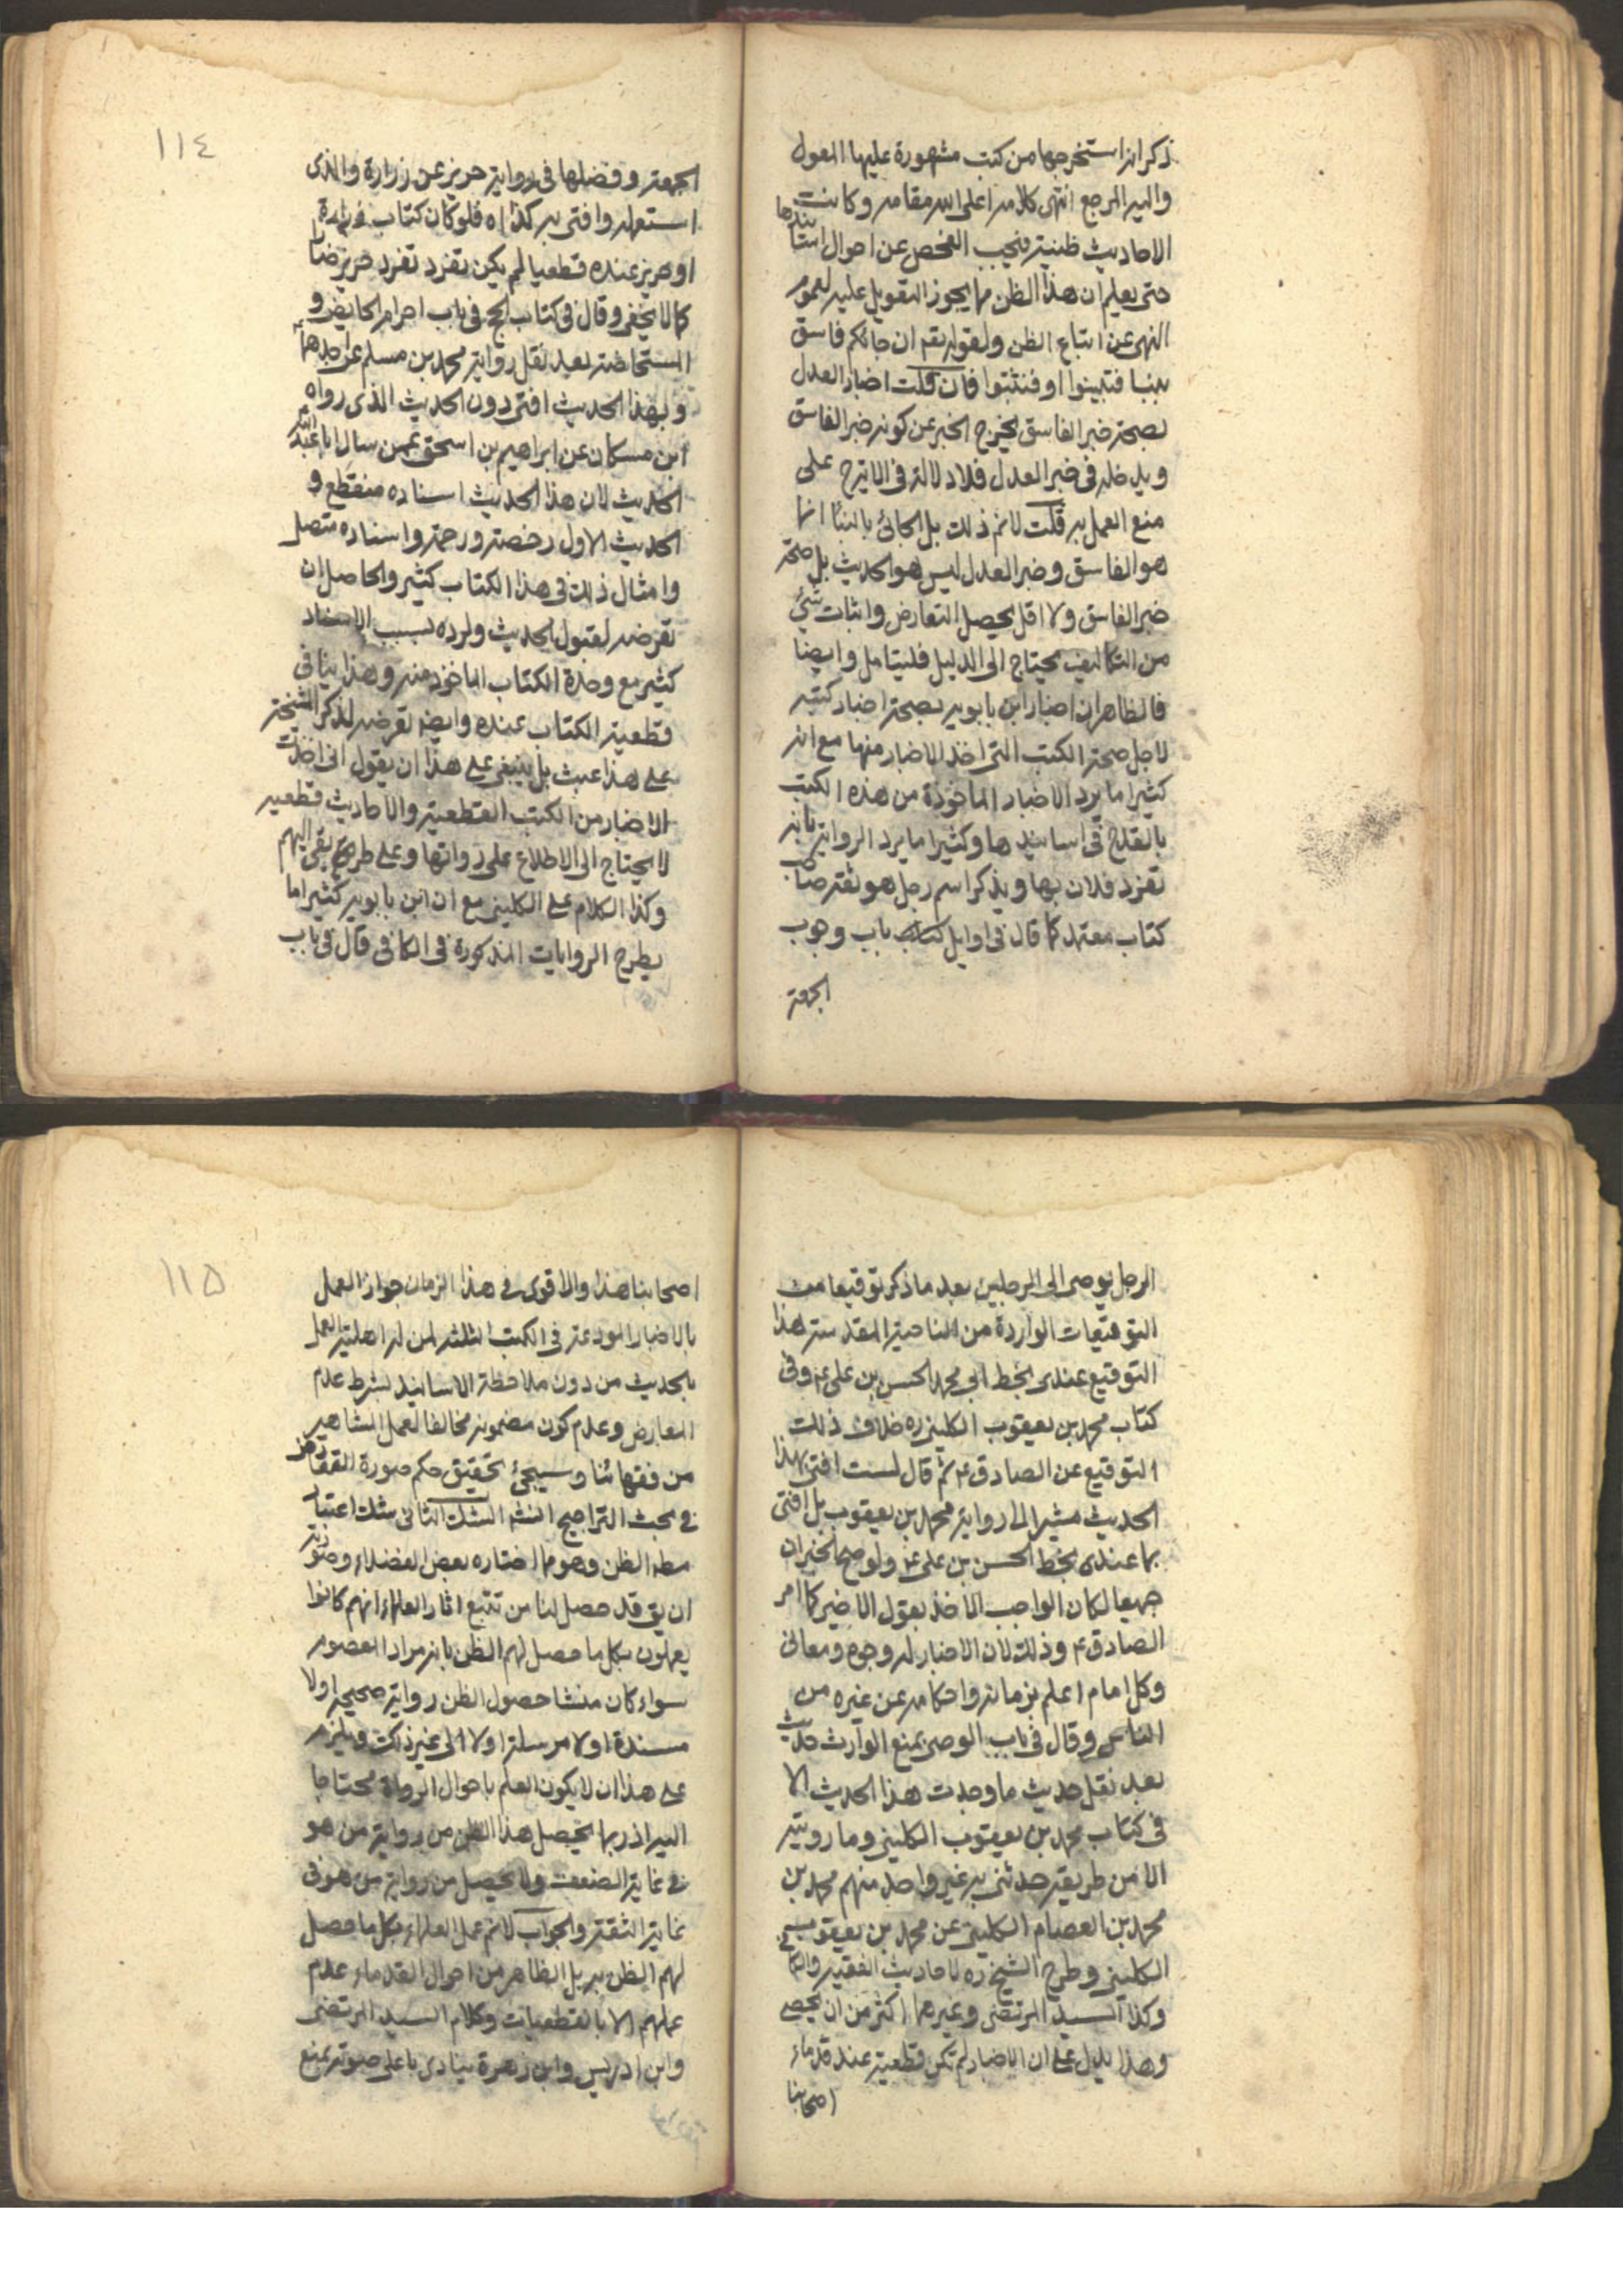 ذكر انه استخرجها من كتب مشهورة عليها المعول
واليه المرجع انتهى كلامه اعلى الله مقامه وكانت
الاحاديث ظنية فيجب الفحص عن احوال اسنادها
حتى يعلم ان هذا الظن مما يجوز التعويل عليه لعموم
النهى عن اتباع الظن ولقوله تعم ان جائكم فاسق
بنبا فتبينوا او فتثبتوا فان قلت اخبار العدل
بصحة خبر الفاسق يخرج الخبر عن كونه خبر الفاسق
ويدخله فى خبر العدل فلا دلالة فى الاية ح على
منع العمل به قلت لانم ذلك بل الجائى بالنبا انما
هو الفاسق وخبر العدل ليس هو الحديث بل صحة
خبر الفاسق ولا اقل يحصل التعارض واثبات شئ
من التكاليف يحتاج الى الدليل فليتامل وايضا
فالظاهر ان اخبار ابن بابويه بصحة اخبار كتبه
لاجل صحة الكتب التى اخذ الاخبار منها مع انه
كثيرا ما يرد الاخبار الماخوذة من هذه الكتب
بالقدح فى اسانيدها وكثيرا ما يرد الرواية بانه
تفرد فلان بها ويذكر اسم رجل هو ثقة صاحب
كتاب معتمد كما قال فى اوايل كتاب باب وجوب
الجمعة
١١٤
الجمعة وفضلها فى رواية حريز عن زرارة والذى
استعمله وافتى به كذا اه فلو كان كتاب زرارة
او حريز عنده قطعيا لم يكن تفرد تفرد حريز ضارا
كما لا يخفى وقال فى كتاب الحج فى باب احرام الحايض و
المستحاضة بعد نقل رواية محمد بن مسلم عن احدهما
وبهذا الحديث افتى دون الحديث الذى رواه
ابن مسكان عن ابراهيم بن اسحق عمن سال ابا عبد الله
الحديث لان هذا الحديث اسناده منقطع و
الحديث الاول رخصة ورحمة واسناده متصل
وامثال ذلك فى هذا الكتاب كثير والحاصل ان
تعرضه لقبول الحديث ولرده بسبب الاسناد
كثير مع وحدة الكتاب الماخوذ منه وهذا ينافى
قطعية الكتاب عنده وايضا تعرضه لذكر المشيخة
على هذا عبث بل ينبغى على هذا ان يقول انى اخذت
الاخبار من الكتب القطعية والاحاديث قطعيه
لا يحتاج الى الاطلاع على رواتها وعلى طريقى اليهم
وكذا الكلام على الكلينى مع ان ابن بابويه كثيرا ما
يطرح الروايات المذكورة فى الكافى قال فى باب
الرجل يوصى الى الرجلين بعد ما ذكر توقيعا من
التوقيعات الواردة من الناحية المقدسة هذا
التوقيع عندى بخط ابى محمد الحسن بن على ع وفى
كتاب محمد بن يعقوب الكلينى ره خلاف ذلك
التوقيع عن الصادق ع ثم قال لست افتى بهذا
الحديث مشيرا الى رواية محمد بن يعقوب بل افتى
بما عندى بخط الحسن بن على ع ولو صح الخبران
جميعا لكان الواجب الاخذ بقول الاخير كما امر
الصادق ع وذلك لان الاخبار له وجوه ومعانى
وكل امام اعلم بزمانه واحكامه عن غيره من
الناس وقال فى باب الوصى يمنع الوارث حديث
بعد نقل حديث ما وجدت هذا الحديث الا
فى كتاب محمد بن يعقوب الكلينى وما رويته
الا من طريقه حدثنى به غير واحد منهم محمد بن
محمد بن العصام الكلينى عن محمد بن يعقوب
الكلينى وطرح الشيخ ره لاحاديث الفقيه والكافى
وكذا السيد المرتضى وغيرهما اكثر من ان يحصى
وهذا يدل على ان الاخبار لم تكن قطعية عند قدماء
اصحابنا
١١٥
اصحابنا هذا والاقوى فى هذا الزمان جواز العمل
بالاخبار المودعة فى الكتب الثلثة لمن له اهلية العمل
بالحديث من دون ملاحظة الاسانيد بشرط عدم
المعارض وعدم كون مضمونه مخالفا لعمل المشاهير
من فقهائنا وسيجئ تحقيق حكم صورة التعارض
فى بحث التراجيح انشم الشك الثانى شك اعتبار
مطه الظن وهو مما اختاره بعض الفضلاء وصورته
ان يق قد حصل لنا من تتبع اثار العلماء انهم كانوا
يعملون بكل ما حصل لهم الظن بانه مراد المعصوم
سواء كان منشا حصول الظن رواية صحيحة اولا
مسندة اولا مرسلة اولا الى غير ذلك ويلزم
على هذا ان لا يكون العلم باحوال الرواة محتاجا
اليه اذ ربما يحصل هذا الظن من رواية من هو
فى غاية الضعف ولا يحصل من رواية من هو فى
غاية الثقة والجواب لانم عمل العلماء بكل ما حصل
لهم الظن به بل الظاهر من احوال القدماء عدم
عملهم الا بالقطعيات وكلام السيد المرتضى
وابن ادريس وابن زهرة ينادى باعلى صوته بمنع